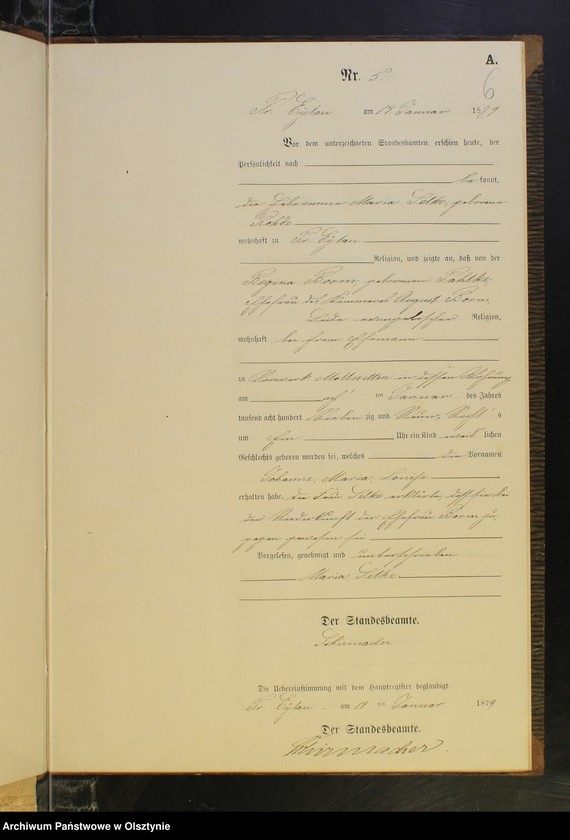 A.
6
Nr. 5.
Pr. Eylau am 14 Januar 1879
Vor dem unterzeichneten Standesbeamten erschien heute, der
Persönlichkeit nach
bekannt,
die Hebeamme Maria Selke, geborene
Rohde
wohnhaft zu Pr. Eylau
Religion, und zeigte an, daß von der
Regina Borm, geborenen Pahlke,
Ehefrau des Kämmerers August Borm,
Beide evangelischer Religion,
wohnhaft bei ihrem Ehemann
in Vorwerk Mollwitten in dessen Wohnung
am ten Januar des Jahres
tausend acht hundert Sieben zig und Neun, Nachts
um Uhr ein Kind weiblichen
Geschlechts geboren worden sei, welches die Vornamen
Johanne, Maria, Louise
erhalten habe. Die Frau Selke erklärte, daß sie bei
der Niederkunft der Ehefrau Borm zu-
gegen gewesen sei
Vorgelesen, genehmigt und unterschrieben
Maria Selke
Der Standesbeamte.
Schirmacher
Die Uebereinstimmung mit dem Hauptregister beglaubigt
Pr. Eylau am 14 ten Januar 1879
Der Standesbeamte.
Schirmacher.
Archiwum Państwowe w Olsztynie